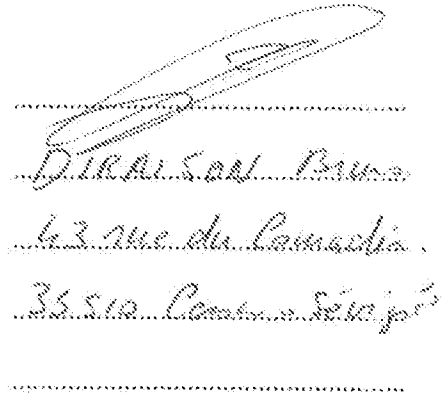 DIRAISON Bruno
43 rue du
35510 Cesson Sévigné